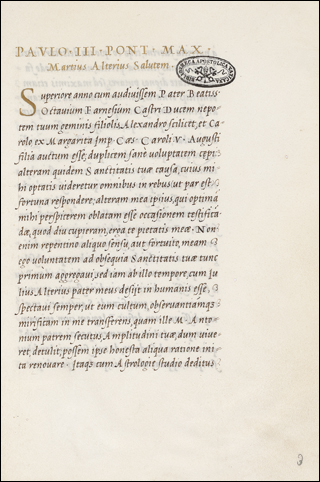 PAVLO · III · PONT · MAX ·
Martius Alterius Salutem ·
Superiore anno cum audiuissem Pater Beatiss·
Octauium Farnesium Castri Ducem nepo
tem tuum geminis filiolis, Alexandro scilicet, et Ca
rolo ex Margarita Imp· Cæs· Caroli V· Augusti
filia auctum esse, duplicem sanè voluptatem cepi:
alteram quidem Sanctitatis tuæ causa, cuius mi
hi optatis videretur omnibus in rebus, ut par est
fortuna respondere; alteram mea ipsius, qui optima
mihi perspicerem oblatam esse occasionem testifica
dæ, quod diu cupieram, erga te pietatis meæ· Non
enim repentino aliquo sensu, aut fortuito, meam
ego voluntatem ad obsequia Sanctitatis tuæ tunc
primum aggregaui, sed iam ab illo tempore, cum Ju
lius Alterius pater meus desijt in humanis esse,
spectaui semper, ut eum cultum, obseruantiamq;
mirificam in me transferens, quam ille M· Anto
nium patrem secutus Amplitudini tuæ, dum viue
ret, detulit, possem ipse honesta aliqua ratione ini
ta renouare· Itaq; cum Astrologiæ studio deditus